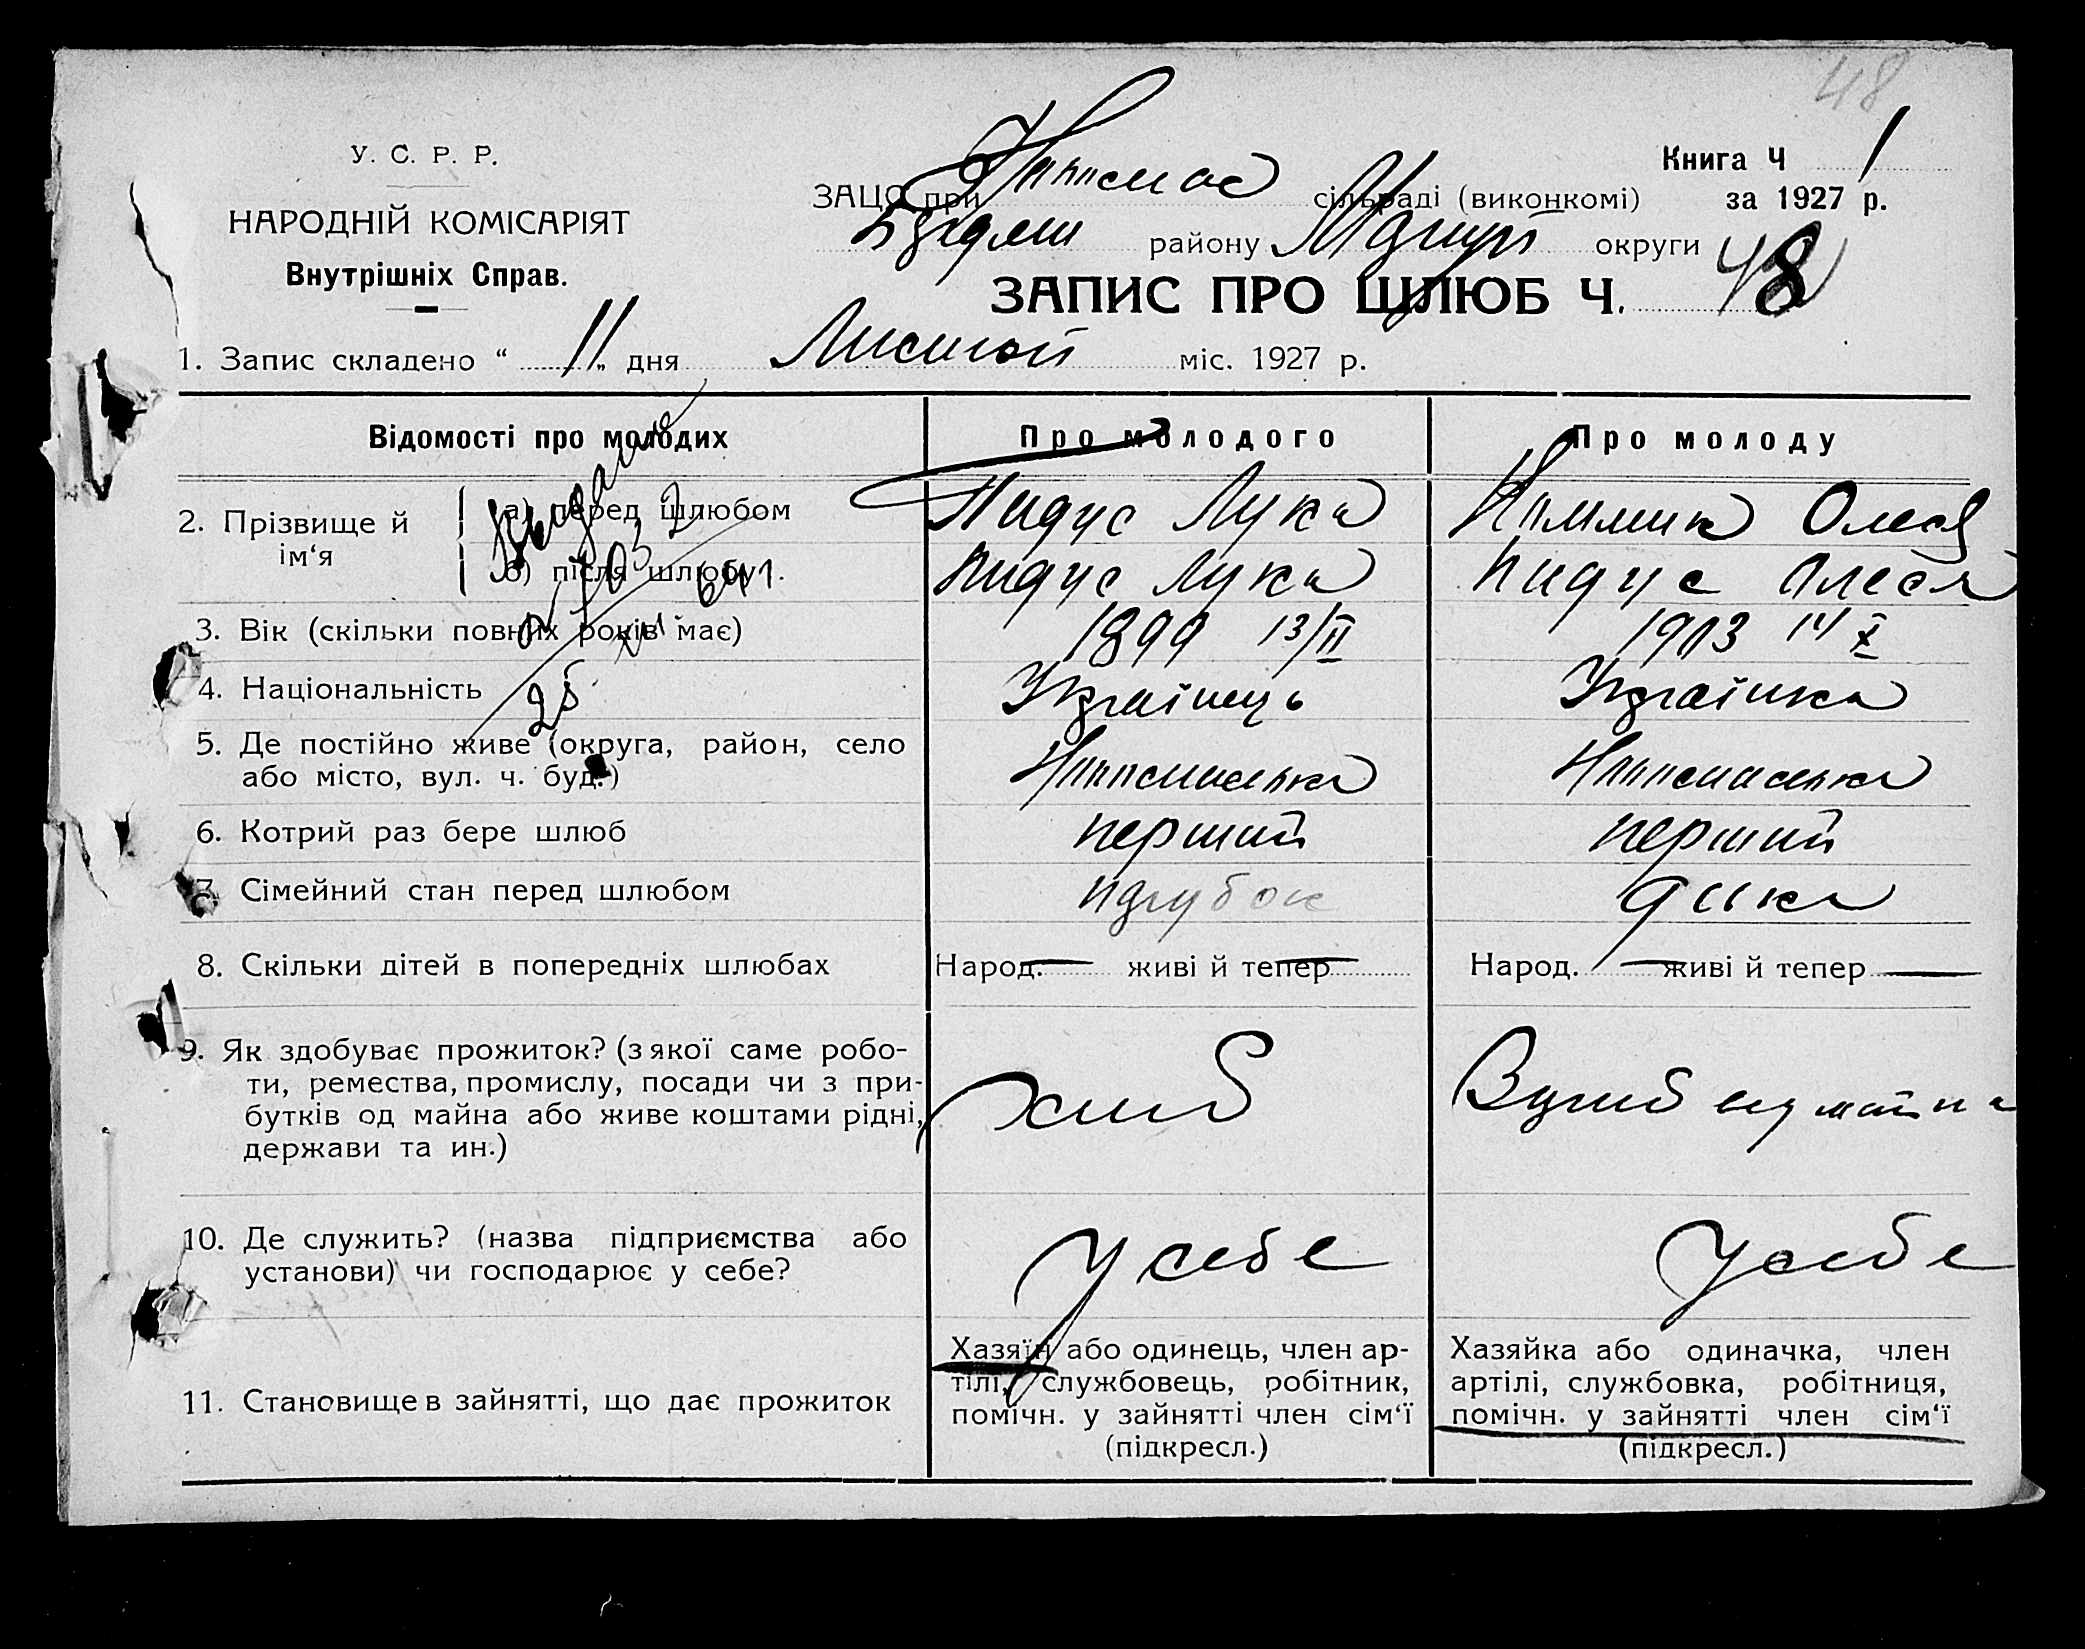 48
У. С. Р. Р.
НАРОДНІЙ КОМІСАРІЯТ
Внутрішніх Справ.
Книга Ч 1
за 1927 р.
ЗАЦС при сільраді (виконкомі)
району округи
ЗАПИС ПРО ШЛЮБ Ч. 48
1. Запис складено “ 11 „ дня Листоп міс. 1927 р.
Відомості про молодих Про молодого Про молоду
2. Прізвище й ім‘я
а) перед шлюбом Пидус Лука Олеся
б) після шлюбу Пидус Лука Пидус Олеся
3. Вік (скільки повних років має) 1899 13/II 1903 14/X
4. Національність Українець Українка
5. Де постійно живе (округа, район, село
або місто, вул. ч. буд.)
6. Котрий раз бере шлюб перший перший
7. Сімейний стан перед шлюбом парубок
8. Скільки дітей в попередніх шлюбах Народ. — живі й тепер — Народ. — живі й тепер —
9. Як здобуває прожиток? (з якої саме робо-
ти, ремества, промислу, посади чи з при-
бутків од майна або живе коштами рідні,
держави та ин.)
хліб
10. Де служить? (назва підприємства або
установи) чи господарює у себе?
У себе У себе
11. Становище в зайнятті, що дає прожиток
Хазяїн або одинець, член ар-
тілі, службовець, робітник,
помічн. у зайнятті член сім‘ї
(підкресл.)
Хазяйка або одиначка, член
артілі, службовка, робітниця,
помічн. у зайнятті член сім‘ї
(підкресл.)